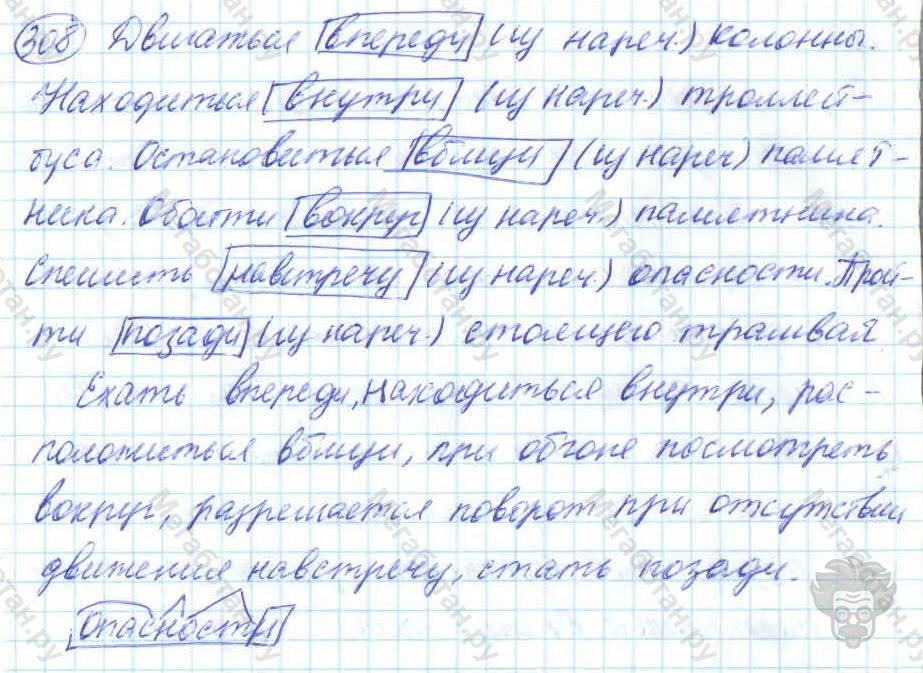 308 Двигаться впереди (из нареч.) колонны.
Находиться внутри (из нареч.) троллей-
буса. Остановиться вблизи (из нареч) памят-
ника. Обойти вокруг (из нареч.) памятника.
Спешить навстречу (из нареч.) опасности. Прой-
ти позади (из нареч.) стоящего трамвая
Ехать впереди, находиться внутри, рас-
положиться вблизи, при обгоне посмотреть
вокруг, разрешается поворот при отсутствии
движения навстречу, стать позади.
опасности
Мегаботан.ру